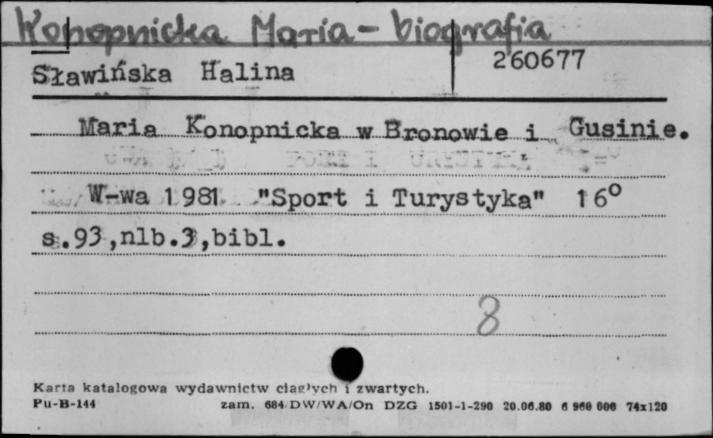 Konopnicka Maria - biografia
Sławińska Halina 260677
Maria Konopnicka w Bronowie i Gusinie.
W-wa 1981 "Sport i Turystyka" 16°
s.93,nlb.3,bibl.
8
Karta katalogowa wydawnictw ciągłych i zwartych.
Pu-B-144 zam. 684/DW/WA/On DZG 1501-1-290 20.06.80 6 960 000 74x120